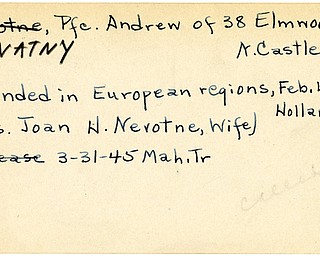 Pfc. Andrew of 38 Elmwoo
VATNY N. Castle
nded in European regions, Feb.
Hollan
s. Joan H. Nevotne, Wife)
ease 3-31-45 Mah. Tr